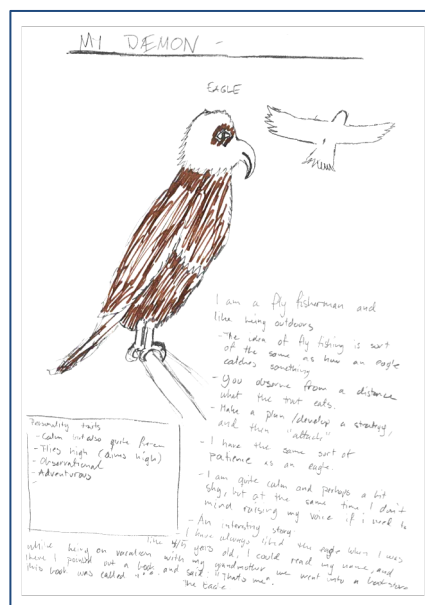 MI DÆMON -
EAGLE
I am a fly fisherman and
like being outdoors
- The idea of fly fishing is sort
of the same as how an eagle
catches something
- You observe from a distance
what the trout eats.
- Make a plan/develop a strategy,
and then "attack"
- I have the same sort of
patience as an eagle.
- I am quite calm and perhaps a bit
shy, but at the same time I don't
mind raising my voice if i need to
- An interesting story.
I have always liked the eagle when I was
like 4/5 years old, I could read my name, and
while being on vacation with my grandmother we went into a bookstore
there I pointed out a book and said "That's me".
this book was called
The Eagle
Personality traits
- Calm but also quite fierce
- Flies high (aims high)
- Observational
- Adventurous
-